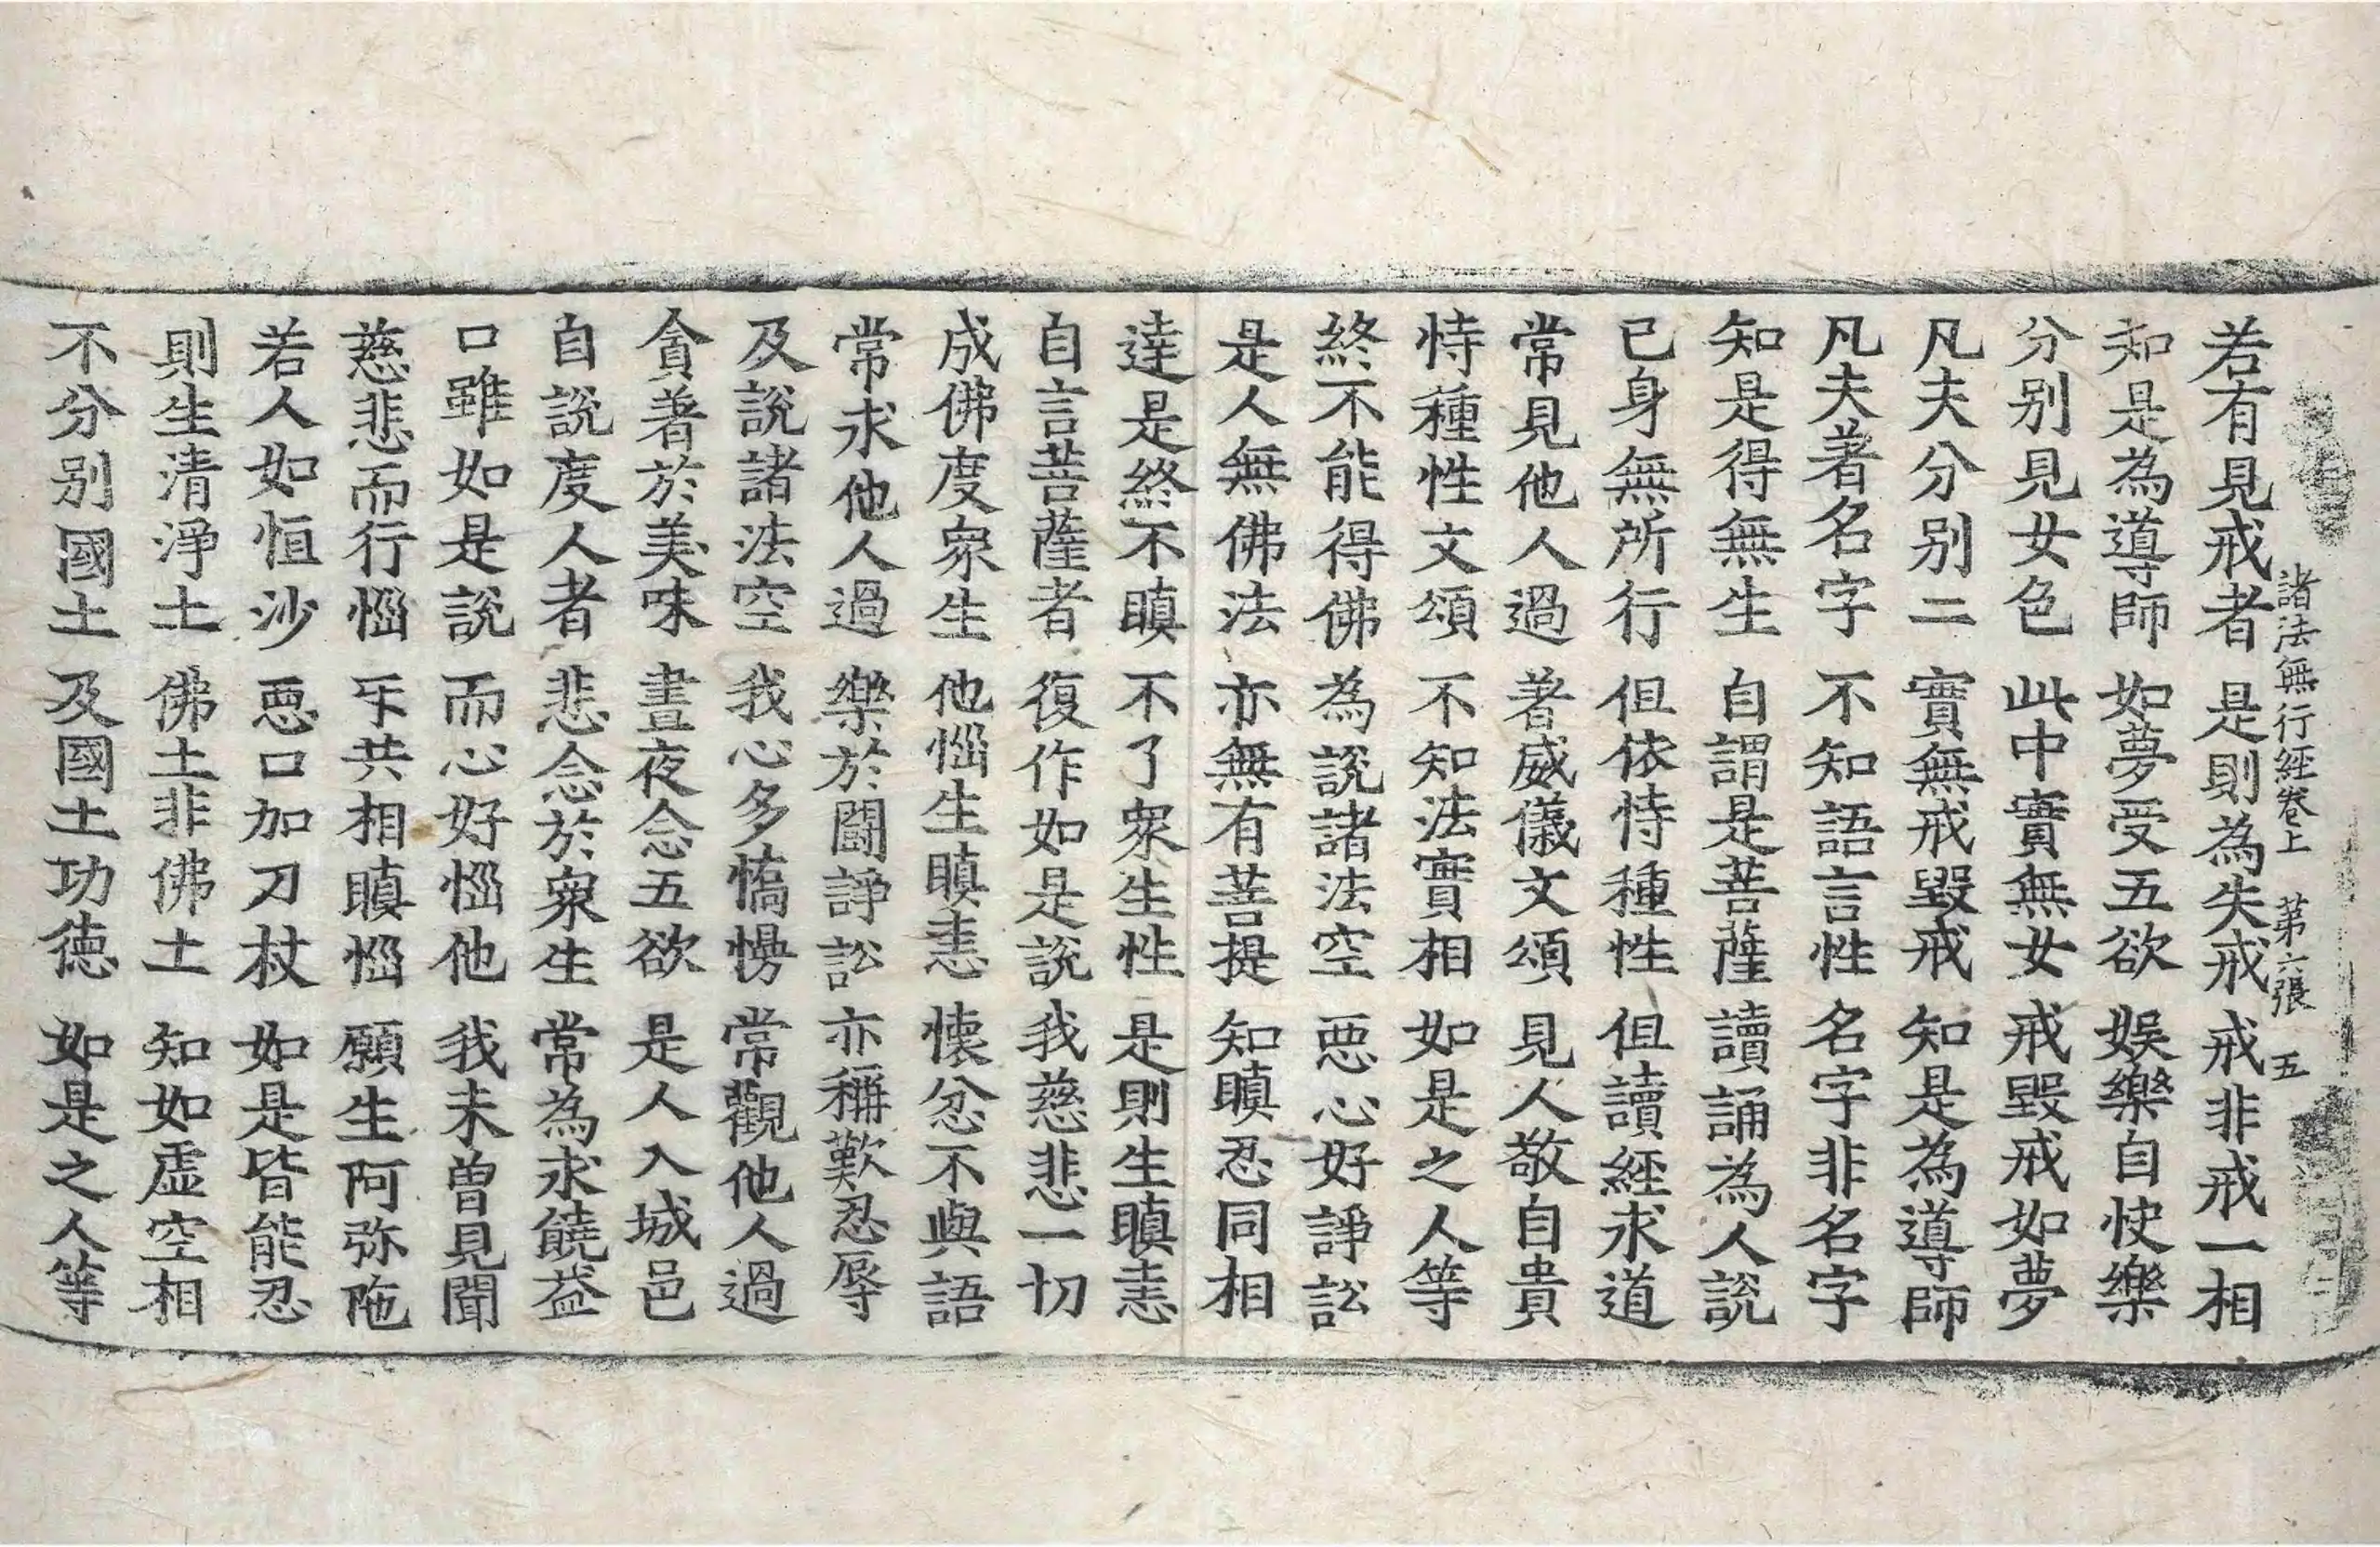 諸法無行經卷上　第六張　五
若有見戒者　是則為失戒　戒非戒一相
知是為導師　如夢受五欲　娛樂自快樂
分別見女色　此中實無女　戒毀戒如夢
凡夫分別二　實無戒毀戒　知是為導師
凡夫著名字　不知語言性　名字非名字
知是得無生　自謂是菩薩　讀誦為人說
已身無所行　但依恃種性　但讀經求道
常見他人過　著威儀文頌　見人敬自貴
恃種性文頌　不知法實相　如是之人等
終不能得佛　為說諸法空　惡心好諍訟
是人無佛法　亦無有菩提　知瞋忍同相
達是終不瞋　不了眾生性　是則生瞋恚
自言菩薩者　復作如是說　我慈悲一切
成佛度眾生　他惱生瞋恚　懷忿不與語
常求他人過　樂於鬪諍訟　亦稱歎忍辱
及說諸法空　我心多憍慢　常觀他人過
貪著於美味　晝夜念五欲　是人入城邑
自說度人者　悲念於眾生　常為求饒益
口雖如是說　而心好惱他　我未曾見聞
慈悲而行惱　互共相瞋惱　願生阿弥陁
若人如恒沙　惡口加刀杖　如是皆能忍
則生清淨土　佛土非佛土　知如虛空相
不分別國土　及國土功德　如是之人等